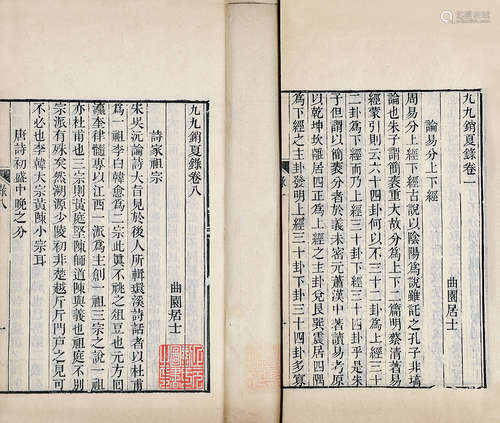 九九銷夏錄卷一
曲園居士
論易分上下經
周易分上下經古說以陰陽為說雖託之孔子非塙
論也朱子謂簡袠重大故分為上下二篇明蔡清著易
經蒙引則云六十四卦何以不三十二卦為上經三十
二卦為下經而乃上經三十卦下經三十四卦乎是朱
子但謂以簡袠分者於義未密元蕭漢中著讀易考原
以乾坤坎離居四正為上經之主卦兌艮巽震居四隅
為下經之主卦發明上經三十卦下卦三十四卦多寡
九九銷夏錄卷八
曲園居士
詩家祖宗
朱吳沆論詩大旨見於後人所輯環溪詩話者以杜甫
為一祖李白韓愈為二宗此真不祧之俎豆也元方回
瀛奎律髓專以江西一派為主創一祖三宗之說一祖
亦杜甫也三宗則黃庭堅陳師道陳與義也祖庭不別
宗派有殊矣然溯源少陵初非楚越斤斤門戶之見可
不必也李韓大宗黃陳小宗耳
唐詩初盛中晚之分
錄八
一